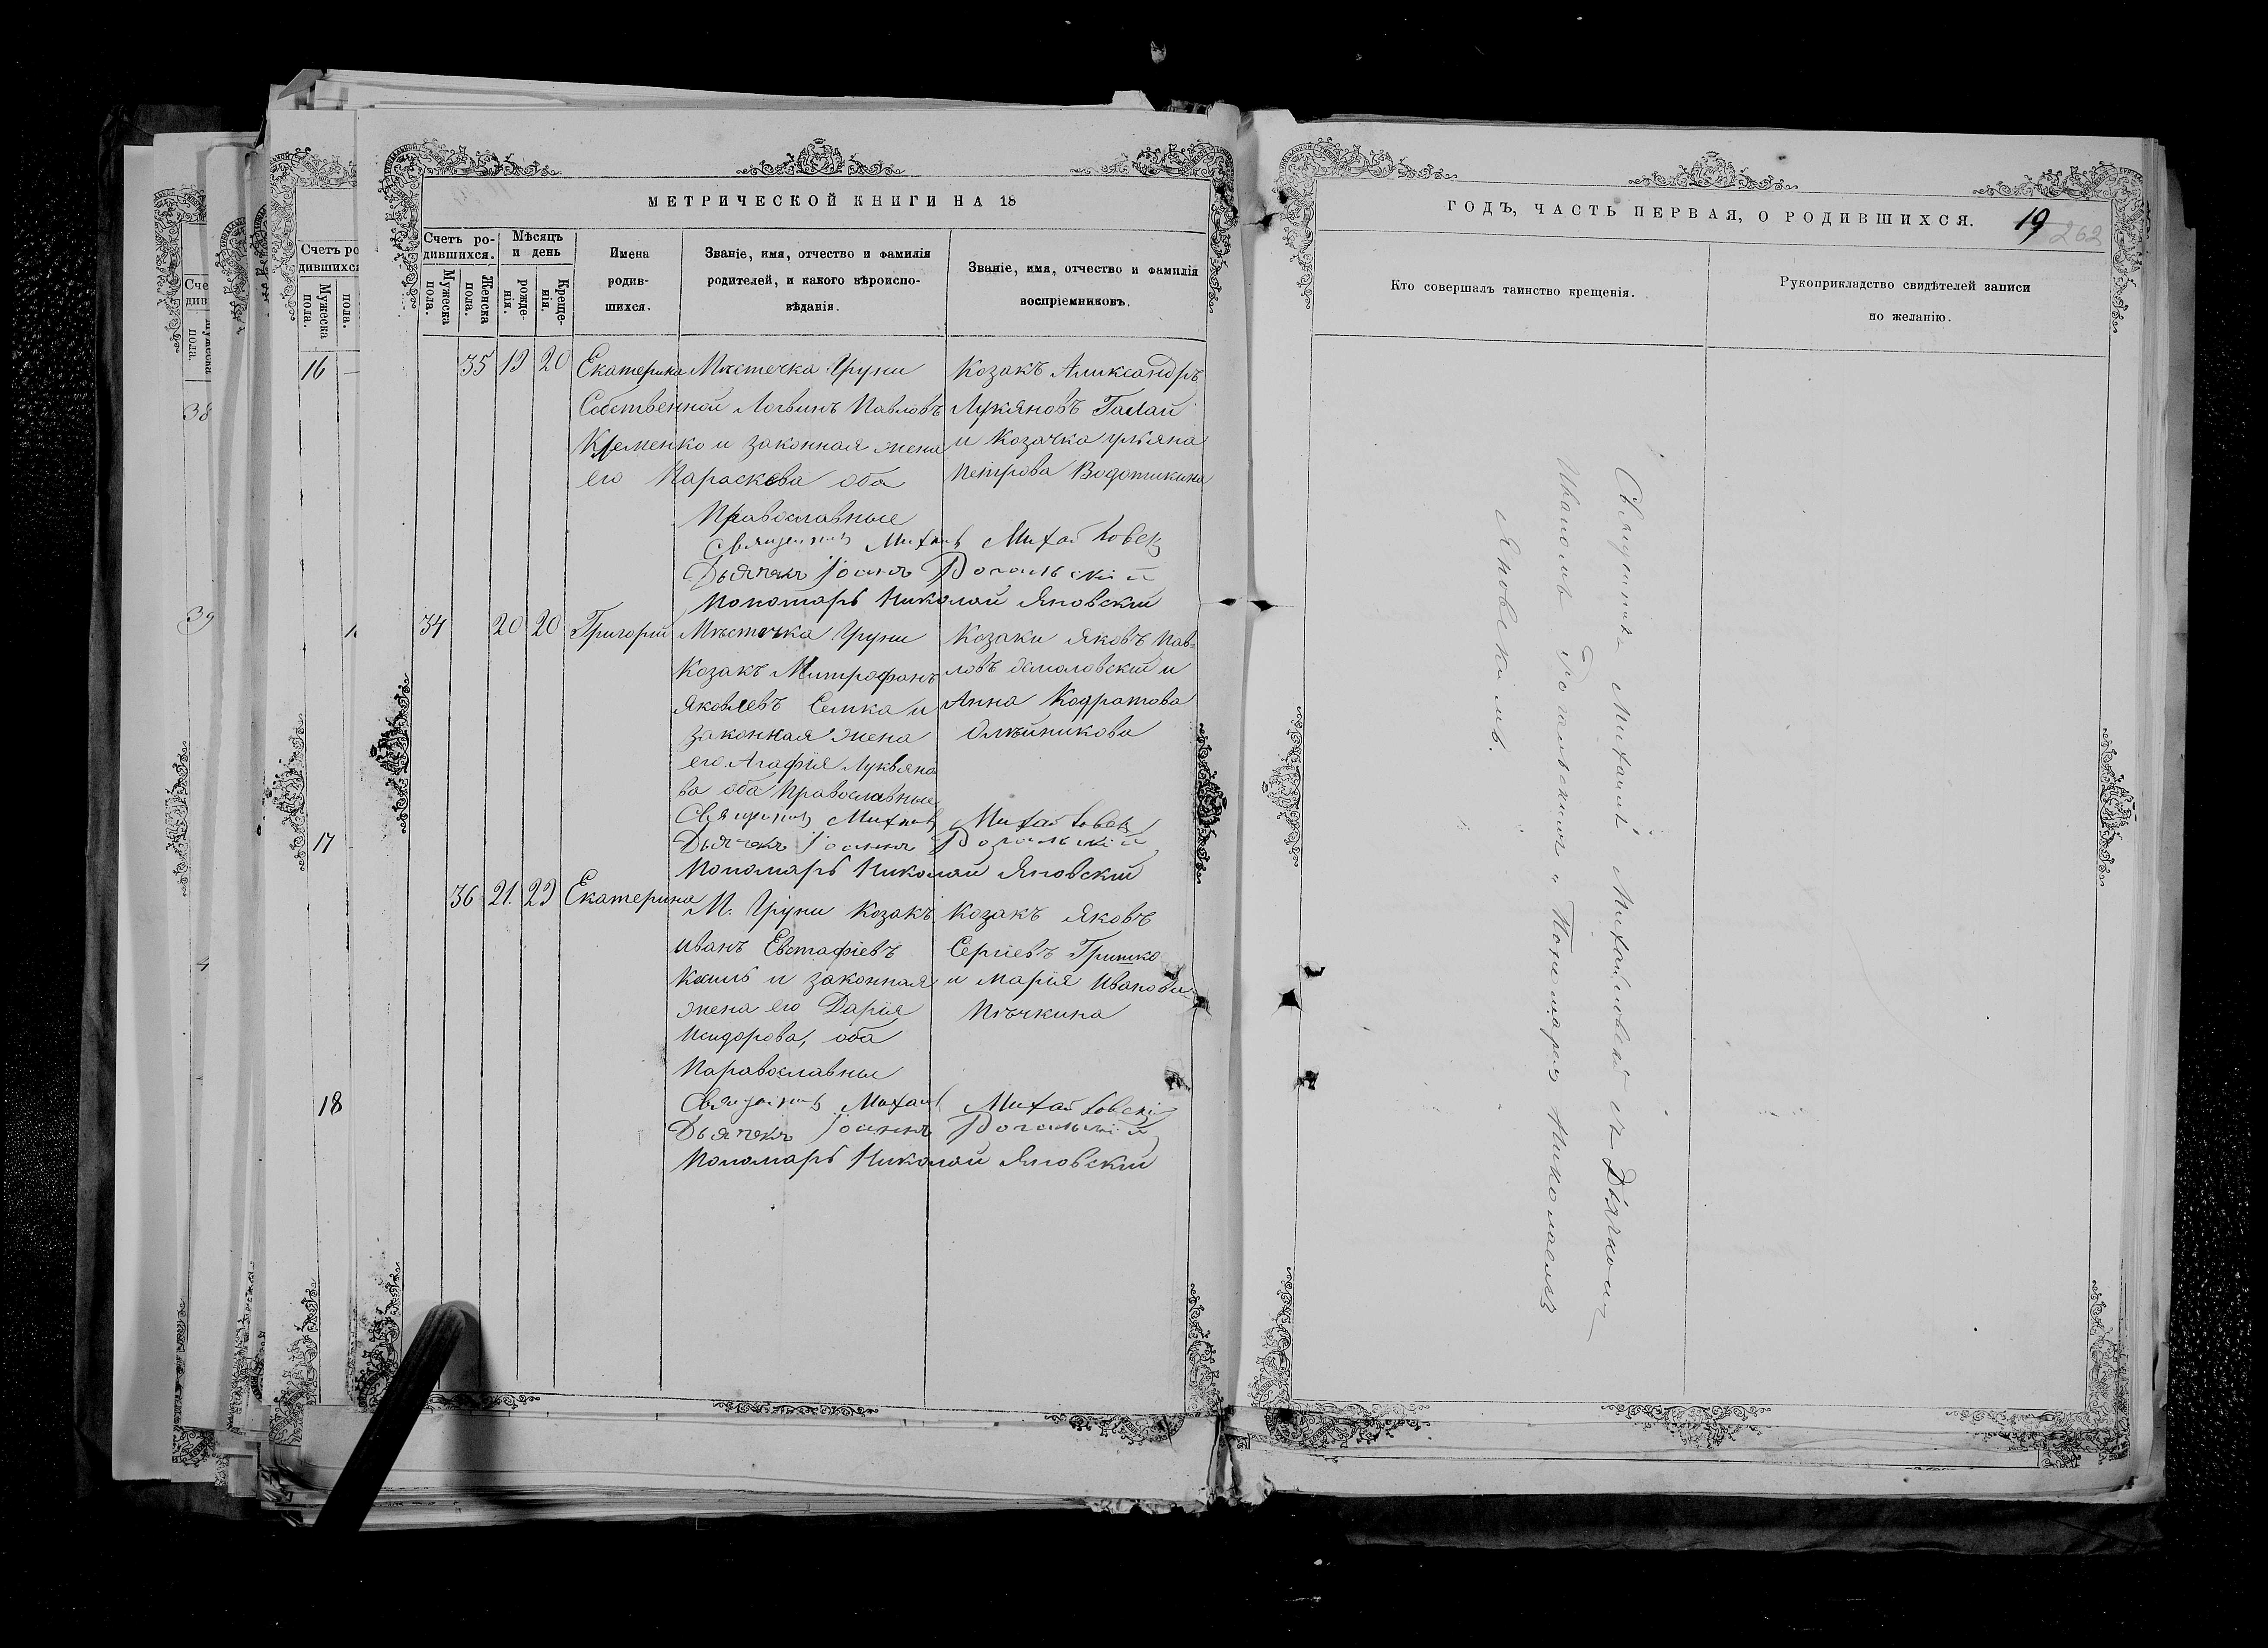 МЕТРИЧЕСКОЙ КНИГИ НА 18
Счетъ ро-
дившихся.
Мѣсяцъ
и день
Мужеска
пола.
Женска
пола.
рожде-
нія.
Креще-
нія.
Имена
родив-
шихся.
Званіе, имя, отчество и фамилія
родителей, и какого вѣроиспо-
вѣданія.
Званіе, имя, отчество и фамилія
воспріемниковъ.
35 19 20 Екатерина Мѣстечка Груни
Собственной Логвинъ Павловъ
Кременко и законная жена
его Параскева оба
Православные
Козакъ Александръ
Лукяновъ Галай
и Козачка Ульяна
Петрова
Священникъ Михаилъ Михайловскій
Дьячекъ Іоаннъ Рогальскій
Пономарь Николай Яновскій
34 20 20 Григорій Мѣстечка Груни
Козакъ Митрофанъ
Яковлевъ Семка и
законная жена
его Агафія Лукьяно
ва оба Православные
Козаки Яковъ Пав-
ловъ и
Анна Кодратова
Олѣйникова
Священникъ Михаилъ Михайловскій
Дьячекъ Іоаннъ Рогальскій
Пономарь Николай Яновскій
36 21. 23 Екатерина М. Груни Козакъ
Иванъ Евстафіевъ
и законная
жена его Дарія
Исидорова, оба
Паравославные
Козакъ Яковъ
Сергіевъ Гришко
и Марія Иванова
Пѣчкина
Священникъ Михаилъ Михайловскій
Дьячекъ Іоаннъ Рогальскій
Пономарь Николай Яновскій
Счетъ ро
дившихся
Мужеска
пола.
пола.
16
17
18
Сче
див
пола.
38
39
ГОДЪ, ЧАСТЬ ПЕРВАЯ, О РОДИВШИХСЯ.
19
262
Кто совершалъ таинство крещенія.
Рукоприкладство свидѣтелей записи
по желанію.
Священникъ Михаилъ Михайловскій съ Дьячкомъ
Иваномъ Рогальскимъ и Пономаремъ Николаемъ
Яновскимъ.